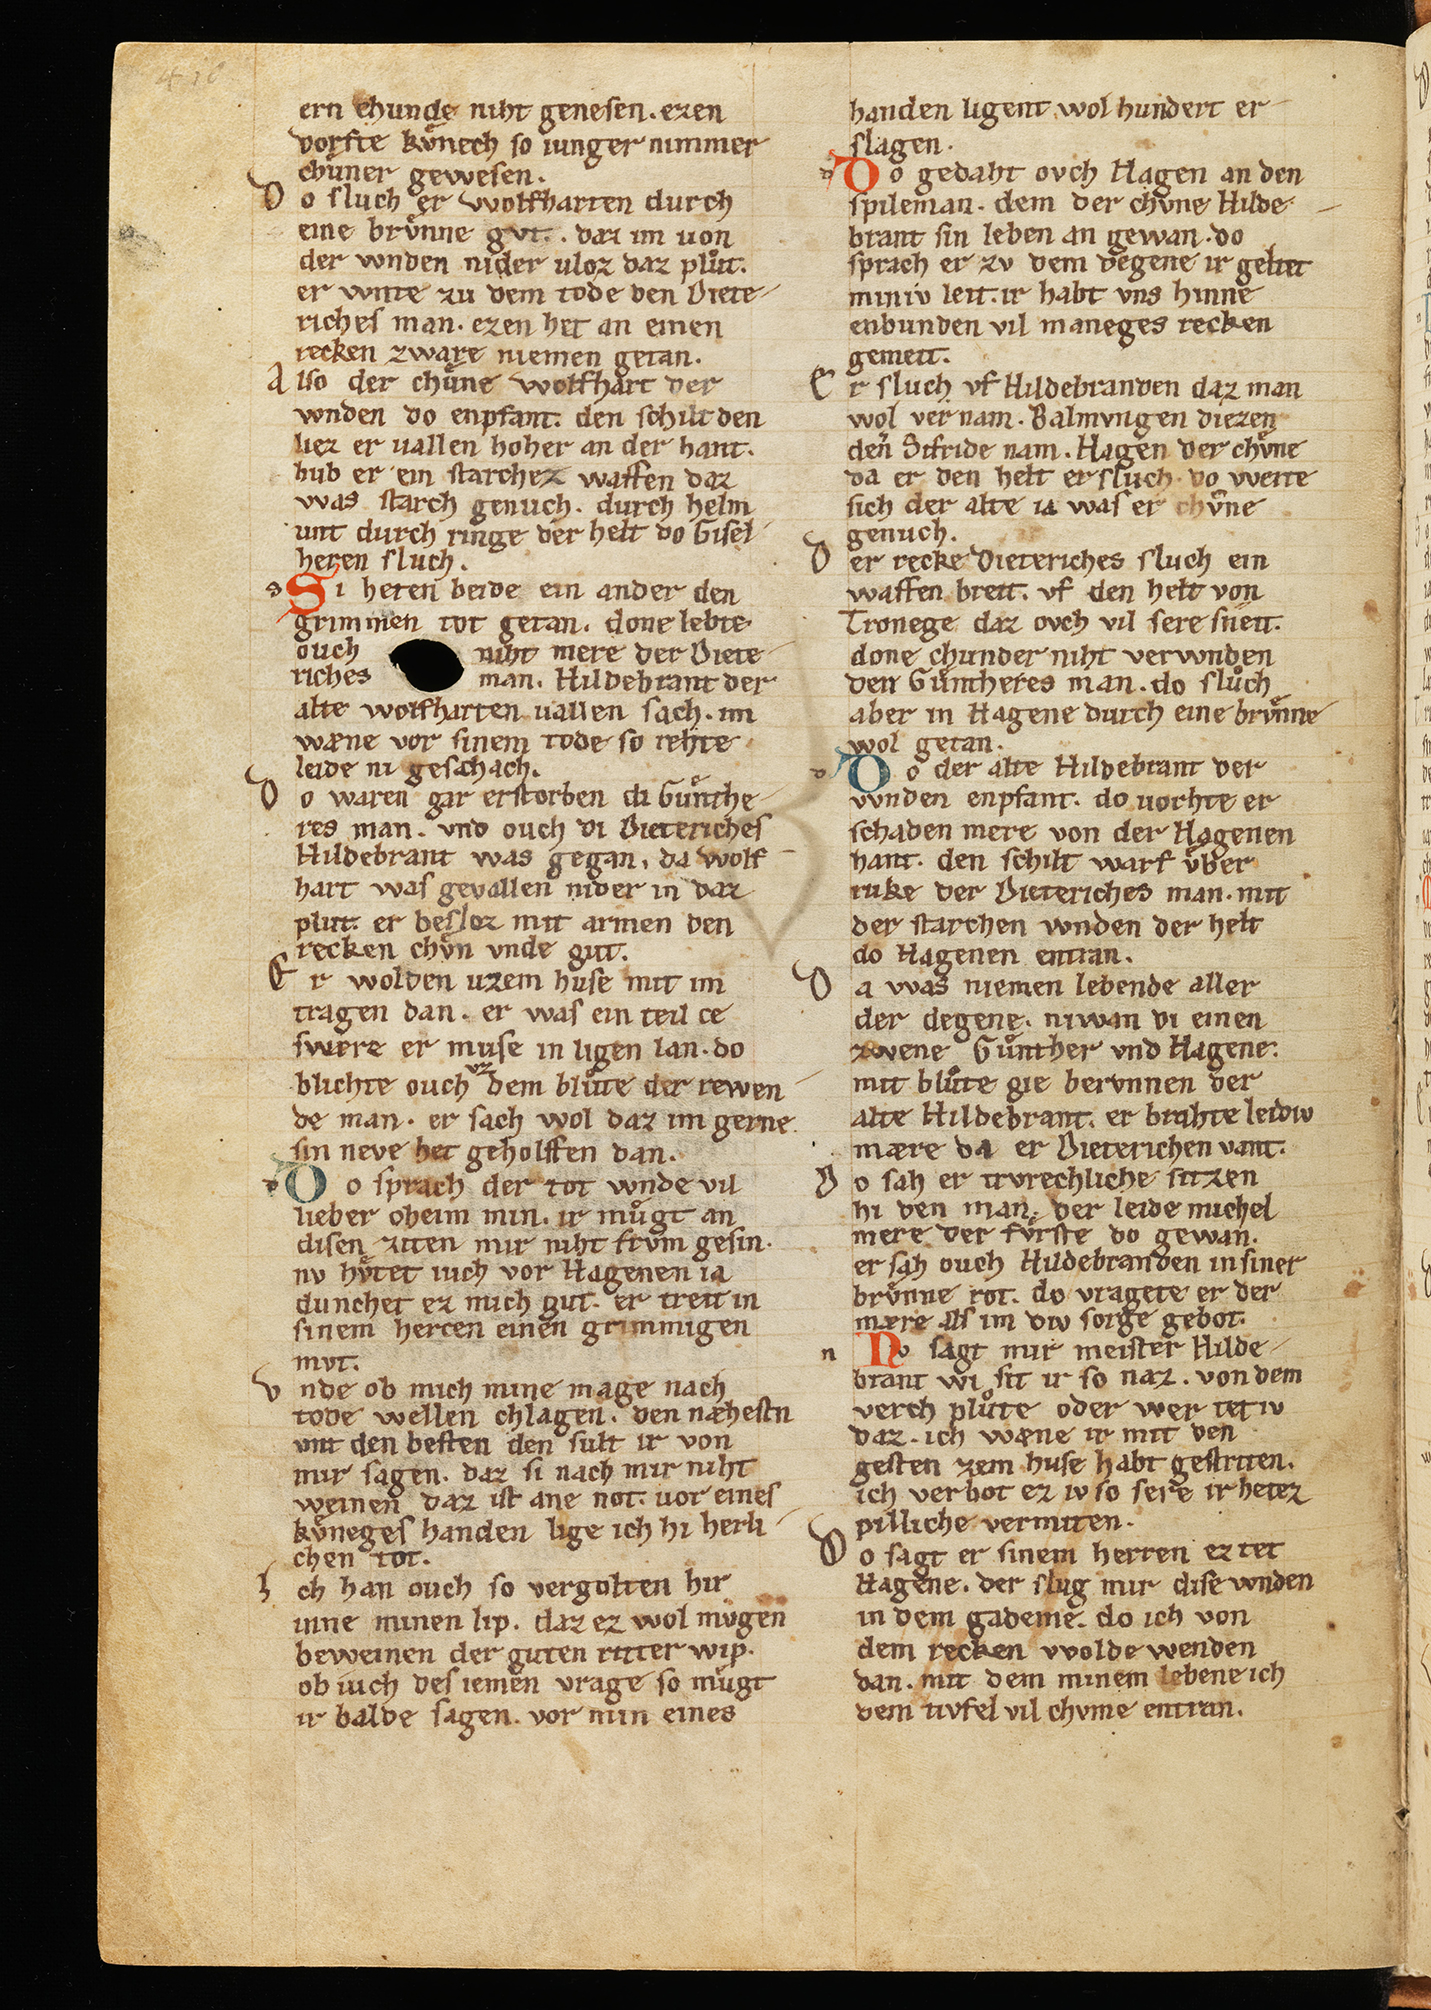 ern chunde niht genesen. ezen
dorfte kůnech so iunger nimmer
chůner gewesen.
Do sluch er wolfharten durch
eine brůnne gvt. daz im uon
der wnden nider uloz daz plůt.
er wnte zu dem tode den Diete
riches man. ezen het an einen
recken zware niemen getan.
Also der chůne wolfhart der
wnden do enpfant. den schilt den
liez er uallen hoher an der hant.
hub er ein starchez waffen daz
was starch genuch. durch helm
unt durch ringe der helt do Gisel
heren sluch.
Si heten beide ein ander den
grimmen tot getan. done lebte
ouch niht mere der Diete
riches man. Hildebrant der
alte wolfharten uallen sach. im
wæne vor sinem tode so rehte
leide ni geschach.
Do waren gar erstorben di Gůnthe
res man. vnd ouch di Dieteriches
Hildebrant was gegan. da wolf
hart was gevallen nider in daz
plut. er besloz mit armen den
recken chůn vnde gut.
Er wolden uzem huse mit im
tragen dan. er was ein teil ce
swære er muse in ligen lan. do
blichte ouch vz dem blůte der rewen
de man. er sach wol daz im gerne
sin neve het geholffen dan.
Do sprach der tot wnde vil
lieber oheim min. ir můgt an
disen ziten mir niht frvm gesin.
nv hůtet iuch vor Hagenen ia
dunchet ez mich gut. er treit in
sinem hercen einen grimmigen
mvt.
vnde ob mich mine mage nach
tode wellen chlagen. den næhestn
vnt den besten den sult ir von
mir sagen. daz si nach mir niht
weinen daz ist ane not. uor eines
kůneges handen lige ich hi herli
chen tot.
Ich han ouch so vergolten hir
inne minen lip. daz ez wol mvgen
beweinen der guten ritter wip.
ob iuch des iemen vrage so můgt
ir balde sagen. vor min eines
handen ligent wol hundert er
slagen.
Do gedaht ovch Hagen an den
spileman. dem der chvne Hilde
brant sin leben an gewan. do
sprach er zv dem degene ir geltet
miniv leit. ir habt vns hinne
enbunden vil maneges recken
gemeit.
Er sluch vf Hildebranden daz man
wol vernam. Balmvngen diezen
den Sifride nam. Hagen der chůne
da er den helt ersluch. do werte
sich der alte ia was er chůne
genuch.
Der recke Dieteriches sluch ein
waffen breit. vf den helt von
Tronege daz ovch vil sere sneit.
done chunder niht verwnden
den Gůntheres man. do slůch
aber in Hagene durch eine brůnne
wol getan.
Do der alte Hildebrant der
wnden enpfant. do uorhte er
schaden mere von der Hagenen
hant. den schilt warf ůber
ruke der Dieteriches man. mit
der starchen wnden der helt
do Hagenen entran.
Da was niemen lebende aller
der degene. niwan di einen
zwene Gůnther vnd Hagene.
mit blůte gie berunnen der
alte Hildebrant. er brahte leidiv
mære da er Dieterichen vant.
Do sah er trvrechliche sitzen
hi den man. der leide michel
mere der fůrste do gewan.
er sah ouch Hildebranden in siner
brůnne rot. do vragete er der
mære als im div sorge gebot.
Nv sagt mir meister Hilde
brant wi sit ir so naz. von dem
verch plůte oder wer tet iv
daz. ich wæne ir mit den
gesten zem huse habt gestriten.
ich verbot ez iv so sere ir hetez
pilliche vermiten.
Do sagt er sinem herren ez tet
Hagene. der slug mir dise wnden
in dem gademe. do ich von
dem recken wolde wenden
dan. mit dem minem lebene ich
dem tivfel vil chvme entran.